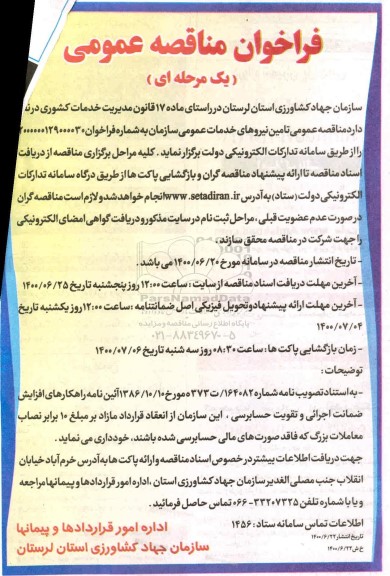 فراخوان مناقصه عمومی
(یک مرحله ای)
سازمان جهاد کشاورزی استان لرستان در راستای ماده ۱۷ قانون مدیریت خدمات کشوری در نظر
دارد مناقصه عمومی تامین نیروهای خدمات عمومی سازمان به شماره فراخوان ۲۰۰۰۰۰۰۱۲۹۰۰۰۰۳۰
را از طریق سامانه تدارکات الکترونیکی دولت برگزار نماید. کلیه مراحل برگزاری مناقصه از دریافت
اسناد مناقصه تا ارائه پیشنهاد مناقصه گران و بازگشایی پاکت ها از طریق درگاه سامانه تدارکات
الکترونیکی دولت (ستاد) به آدرس www.setadiran.ir انجام خواهد شد و لازم است مناقصه گران
در صورت عدم عضویت قبلی، مراحل ثبت نام در سایت مذکور و دریافت گواهی امضای الکترونیکی
را جهت شرکت در مناقصه محقق سازند.
- تاریخ انتشار مناقصه در سامانه مورخ ۱۴۰۰/۰۶/۲۰ می باشد.
- آخرین مهلت دریافت اسناد مناقصه از سایت: ساعت ۱۲:۰۰ روز پنجشنبه تاریخ ۱۴۰۰/۰۶/۲۵
ParsNamadData
- آخرین مهلت ارائه پیشنهاد و تحویل فیزیکی اصل ضمانتنامه: ساعت ۱۲:۰۰ روز یکشنبه تاریخ
پایگاه اطلاع رسانی مناقصه و مزایده
۱۴۰۰/۰۷/۰۴
۰۲۱-۸۸۳۴۹۶۷۰-۵
- زمان بازگشایی پاکت ها: ساعت ۰۸:۳۰ روز سه شنبه تاریخ ۱۴۰۰/۰۷/۰۶
توضیحات:
- به استناد تصویب نامه شماره ۱۶۴۰۸۲/ت۳۷۳ه مورخ ۱۳۸۶/۱۰/۱۰ آئین نامه راهکارهای افزایش
ضمانت اجرائی و تقویت حسابرسی، این سازمان از انعقاد قرارداد مازاد بر مبلغ ۱۰ برابر نصاب
معاملات بزرگ که فاقد صورت های مالی حسابرسی شده باشند، خودداری می نماید.
جهت دریافت اطلاعات بیشتر در خصوص اسناد مناقصه و ارائه پاکت ها به آدرس خرم آباد خیابان
انقلاب جنب مصلی الغدیر سازمان جهاد کشاورزی استان، اداره امور قراردادها و پیمانها مراجعه
و یا با شماره تلفن ۳۳۲۰۷۳۲۵-۰۶۶ تماس حاصل فرمائید.
اطلاعات تماس سامانه ستاد: ۱۴۵۶
تاریخ انتشار ۱۴۰۰/۶/۲۲
خ ش ۱۴۰۰/۶/۲۳
اداره امور قراردادها و پیمانها
سازمان جهاد کشاورزی استان لرستان